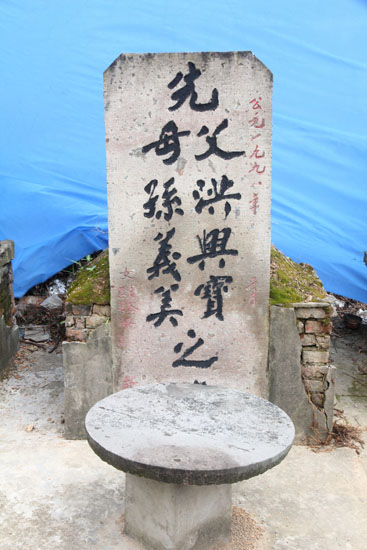 公元一九九八年
先
父洪興寶
母孫義美
之